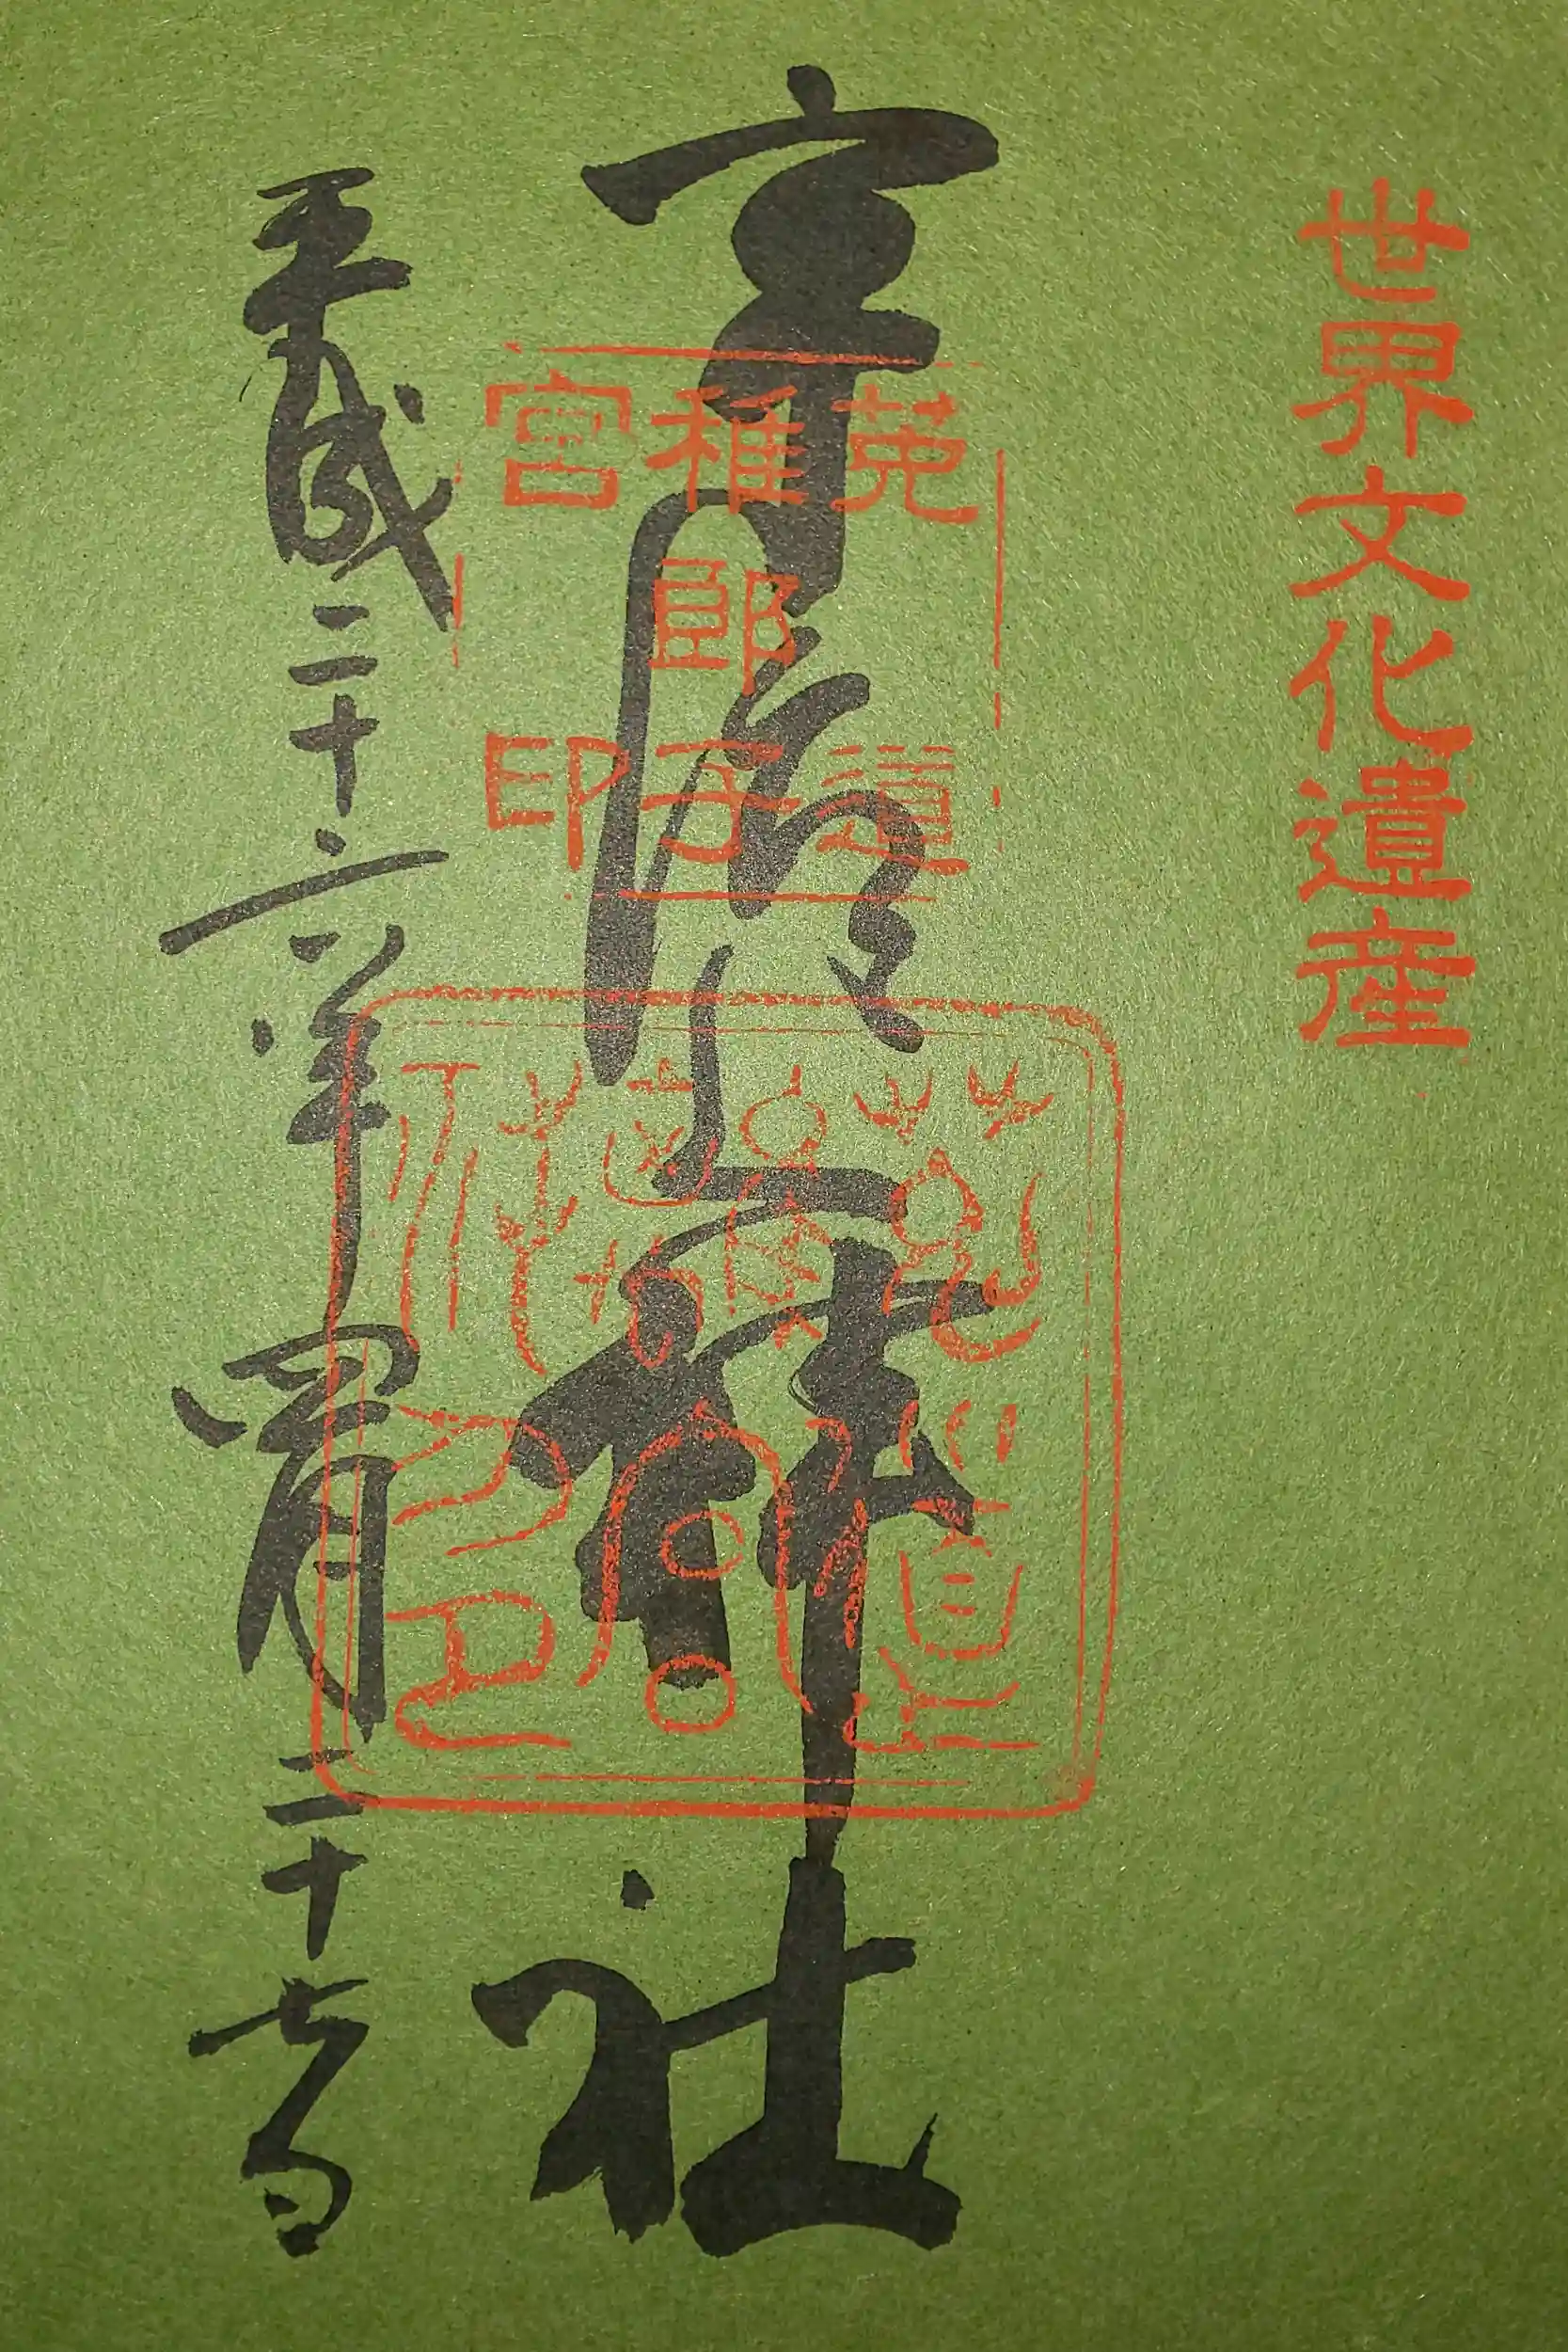 世界文化遺産
宇治上神社
菟道
稚郎子
宮印
平成二十六年四月二十七日